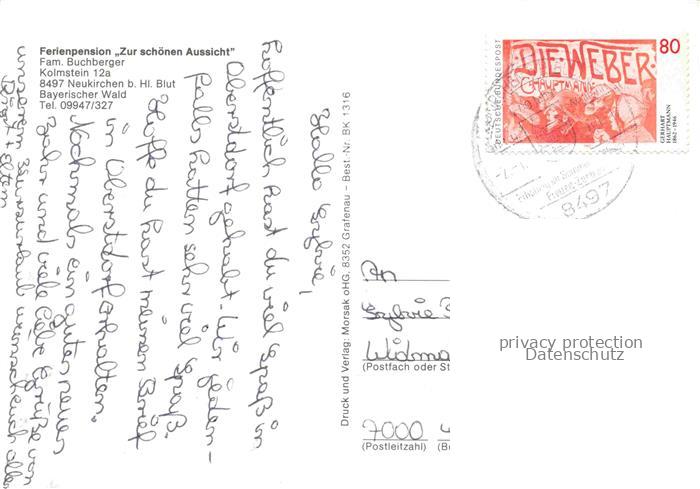 Ferienpension „Zur schönen Aussicht"
Fam. Buchberger
Kolmstein 12a
8497 Neukirchen b. Hl. Blut
Bayerischer Wald
Tel. 09947/327
Hallo Sylvie,
hoffentlich hast du viel Spaß in
Oberstdorf gehabt. Wir jeden-
falls hatten sehr viel Spaß.
Hoffe du hast meinen Brief
in Oberstdorf erhalten.
Nochmals ein guten neuen
Jahr und viele liebe Grüße von
unserem Kurzurlaub wünschen euch alle
Birgit + Eltern
Druck und Verlag: Morsak oHG, 8352 Grafenau – Best. Nr. BK 1316
DEUTSCHE BUNDESPOST
DIE WEBER
HAUPTMANN
80
GERHART
HAUPTMANN
1862-1946
8497
An
Sylvie
Widma
(Postfach oder St
7000
(Postleitzahl)
privacy protection
Datenschutz